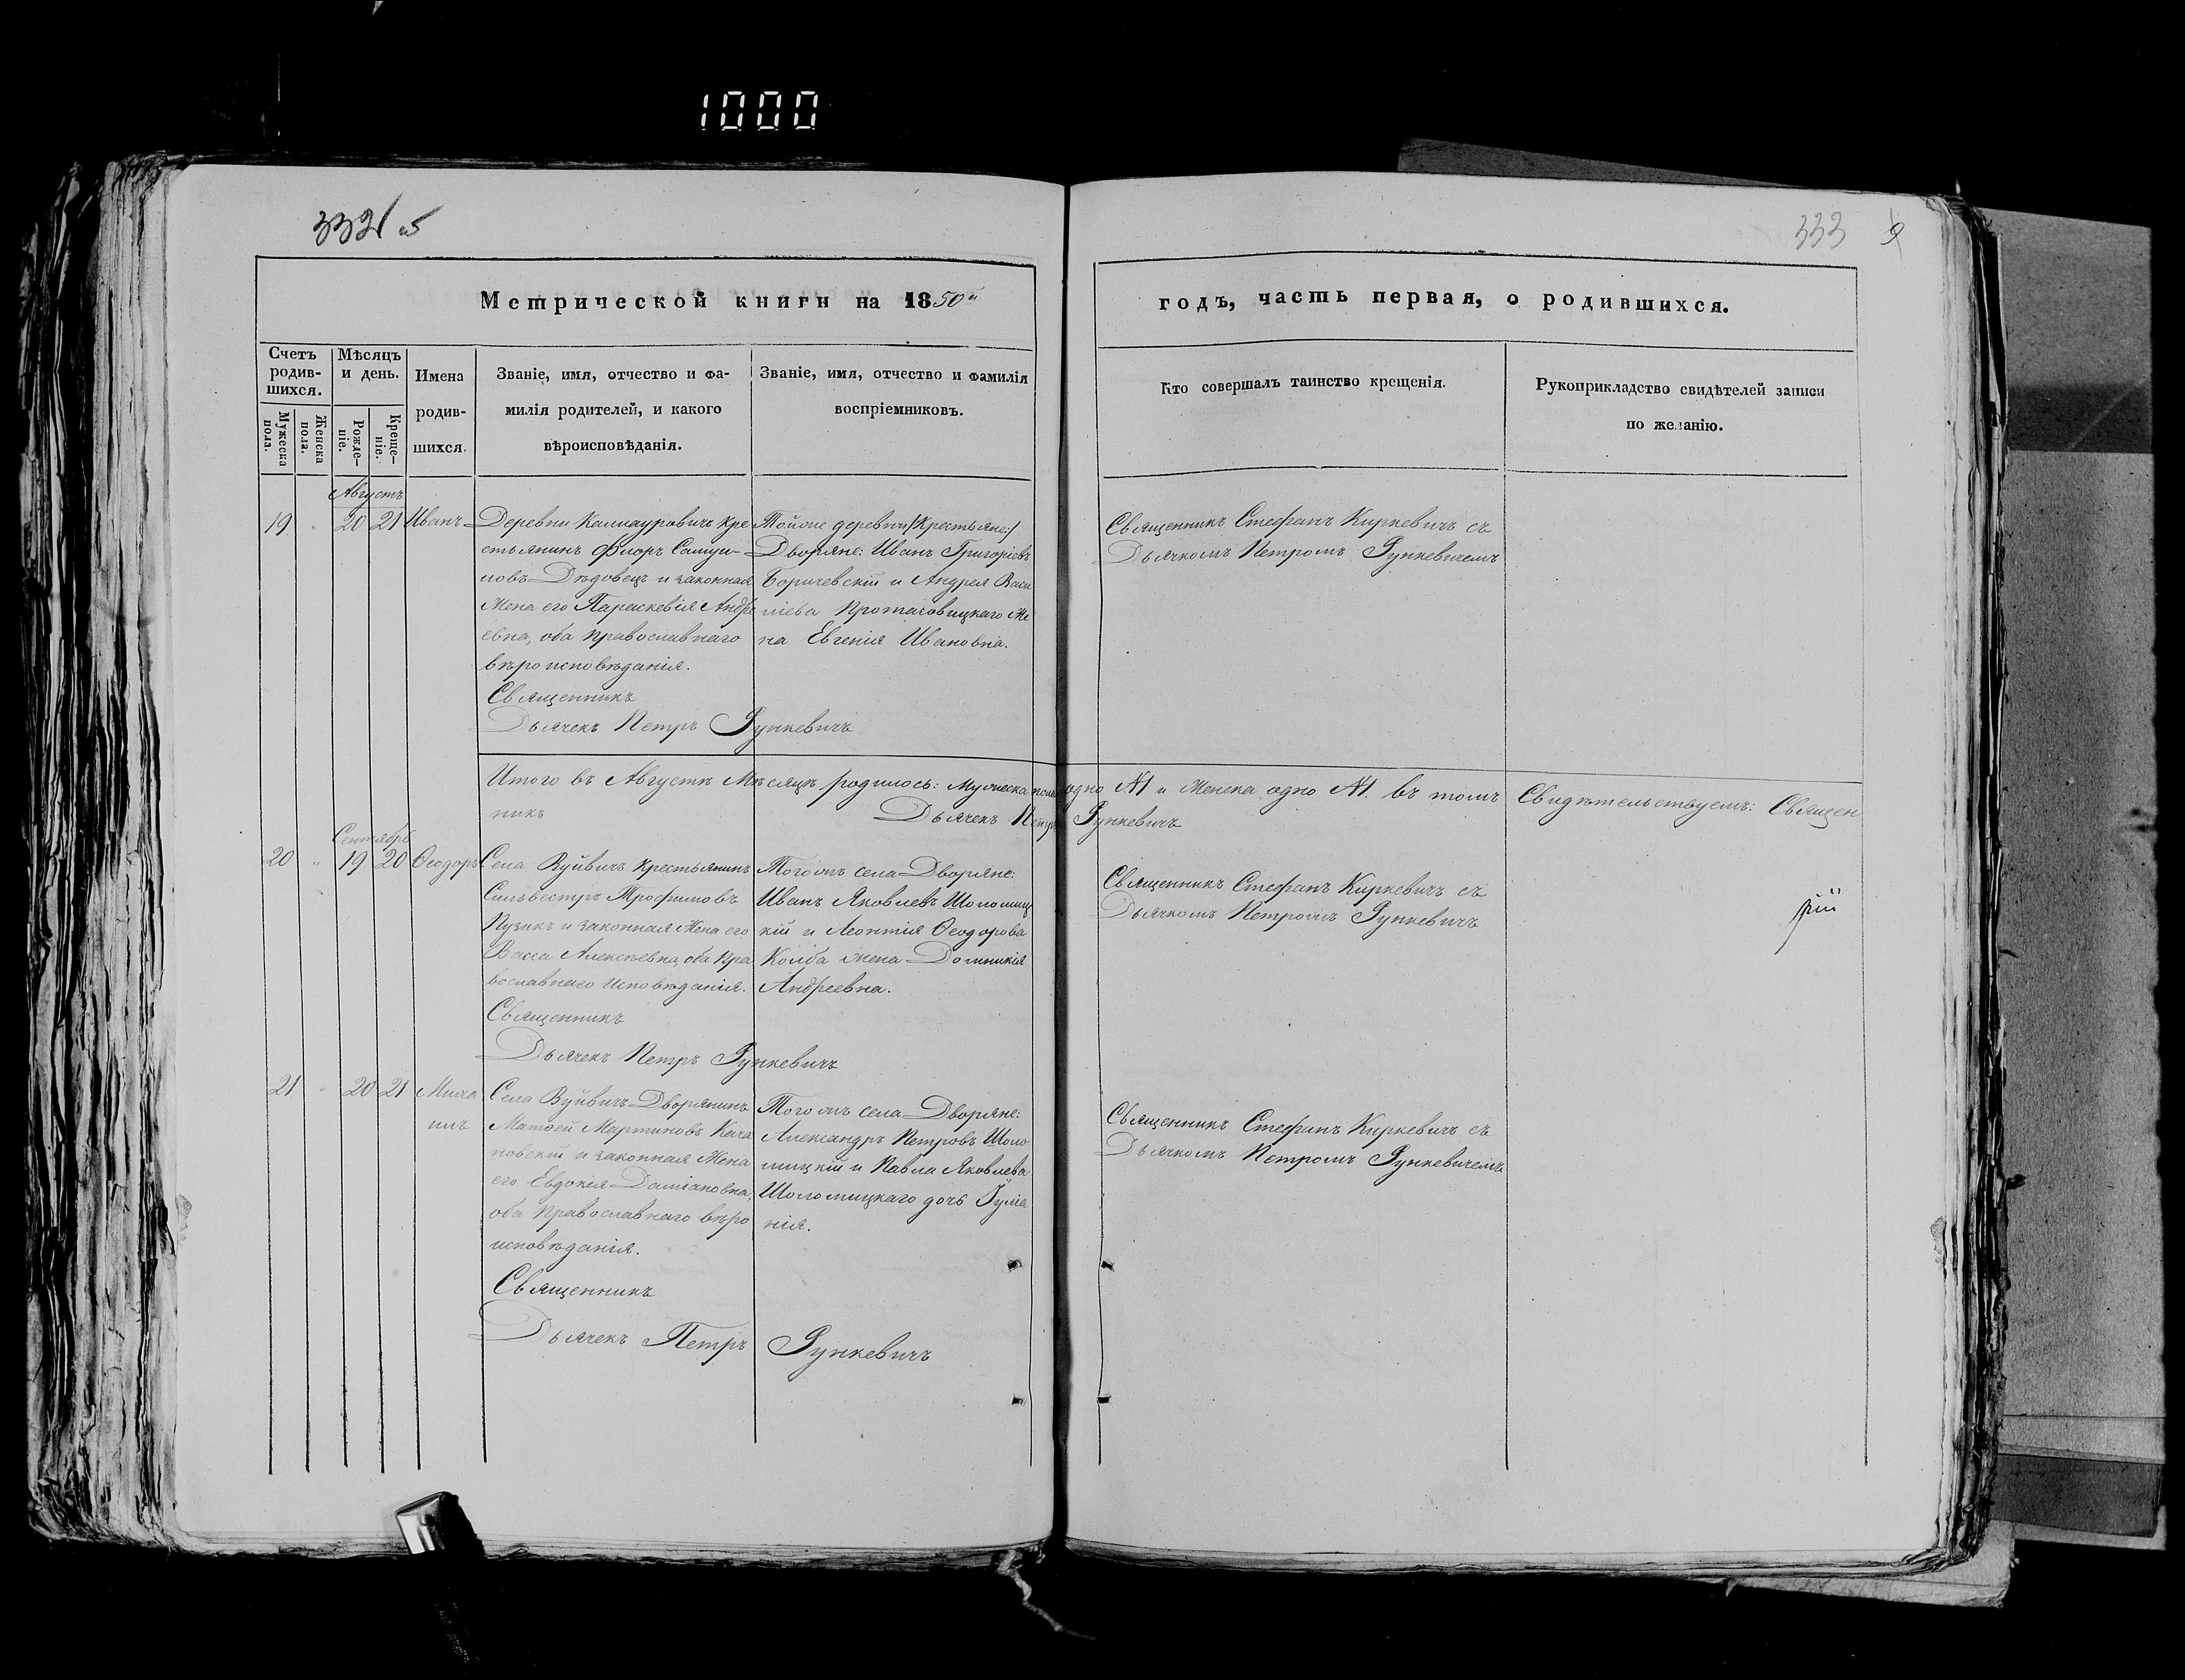 1000
332 об
333
Метрической книги на 1850й
годъ, часть первая, о родившихся.
Счетъ родив-
шихся.
Мѣсяцъ
и день.
Мужеска
пола.
Женска
пола.
Рожде-
ніе.
Креще-
ніе.
Имена
родив-
шихся.
Званіе, имя, отчество и фа-
милія родителей, и какого
вѣроисповѣданія.
Званіе, имя, отчество и фамилія
воспріемниковъ.
Кто совершалъ таинство крещенія.
Рукоприкладство свидѣтелей записи
по желанію.
Августъ
19 " 20 21 Иванъ
Деревни Камлауровичъ кре
стьянинъ Флоръ Самуи-
ловъ Дѣдовецъ и законная
Жена его Параскевія Андре
евна, оба православнаго
вѣроисповѣданія.
Священникъ
Дьячекъ Петръ Рункевичъ
Тойже деревни /:Крестьяне:/
Дворяне: Иванъ Григоріевъ
Боричевскій и Андрея Васи
ліева Протасовицкаго Же
на Евгенія Ивановна.
Священникъ Стефанъ Киркевичъ съ
Дьячкомъ Петромъ Рункевичемъ
Итого въ Августѣ Мѣсяцѣ родилось: Мужеска пола одно №1 и Женска одно №1. въ томъ Свидѣтельствуемъ: Священ
никъ Дьячекъ Петръ Рункевичъ
Сентябрь
20 " 19 20 Ѳеодоръ
Села Вуйвичъ крестьянинъ
Сильвестръ Трофимовъ
Пузикъ и законная Жена его
Васса Алексѣевна, оба Пра
вославнаго исповѣданія.
Священникъ
Дьячекъ Петръ Рункевичъ
Тогожъ села Дворяне:
Иванъ Яковлевъ Шоломиц
кій и Леонтія Ѳеодорова
Колба жена Домникія
Андреевна.
Священникъ Стефанъ Киркевичъ съ
Дьячкомъ Петромъ Рункевичъ
рій
21 " 20 21 Миха
илъ
Села Вуйвичъ Дворянинъ
Матѳей Мартиновъ Кача
новскій и законная Жена
его Евдокія Даміановна,
оба Православнаго вѣро
исповѣданія.
Священникъ
Дьячекъ Петръ Рункевичъ
Тогожъ села Дворяне:
Александръ Петровъ Шоло
мицкій и Павла Яковлева
Шоломицкаго дочь Іулiа
нія.
Священникъ Стефанъ Киркевичъ съ
Дьячкомъ Петромъ Рункевичемъ